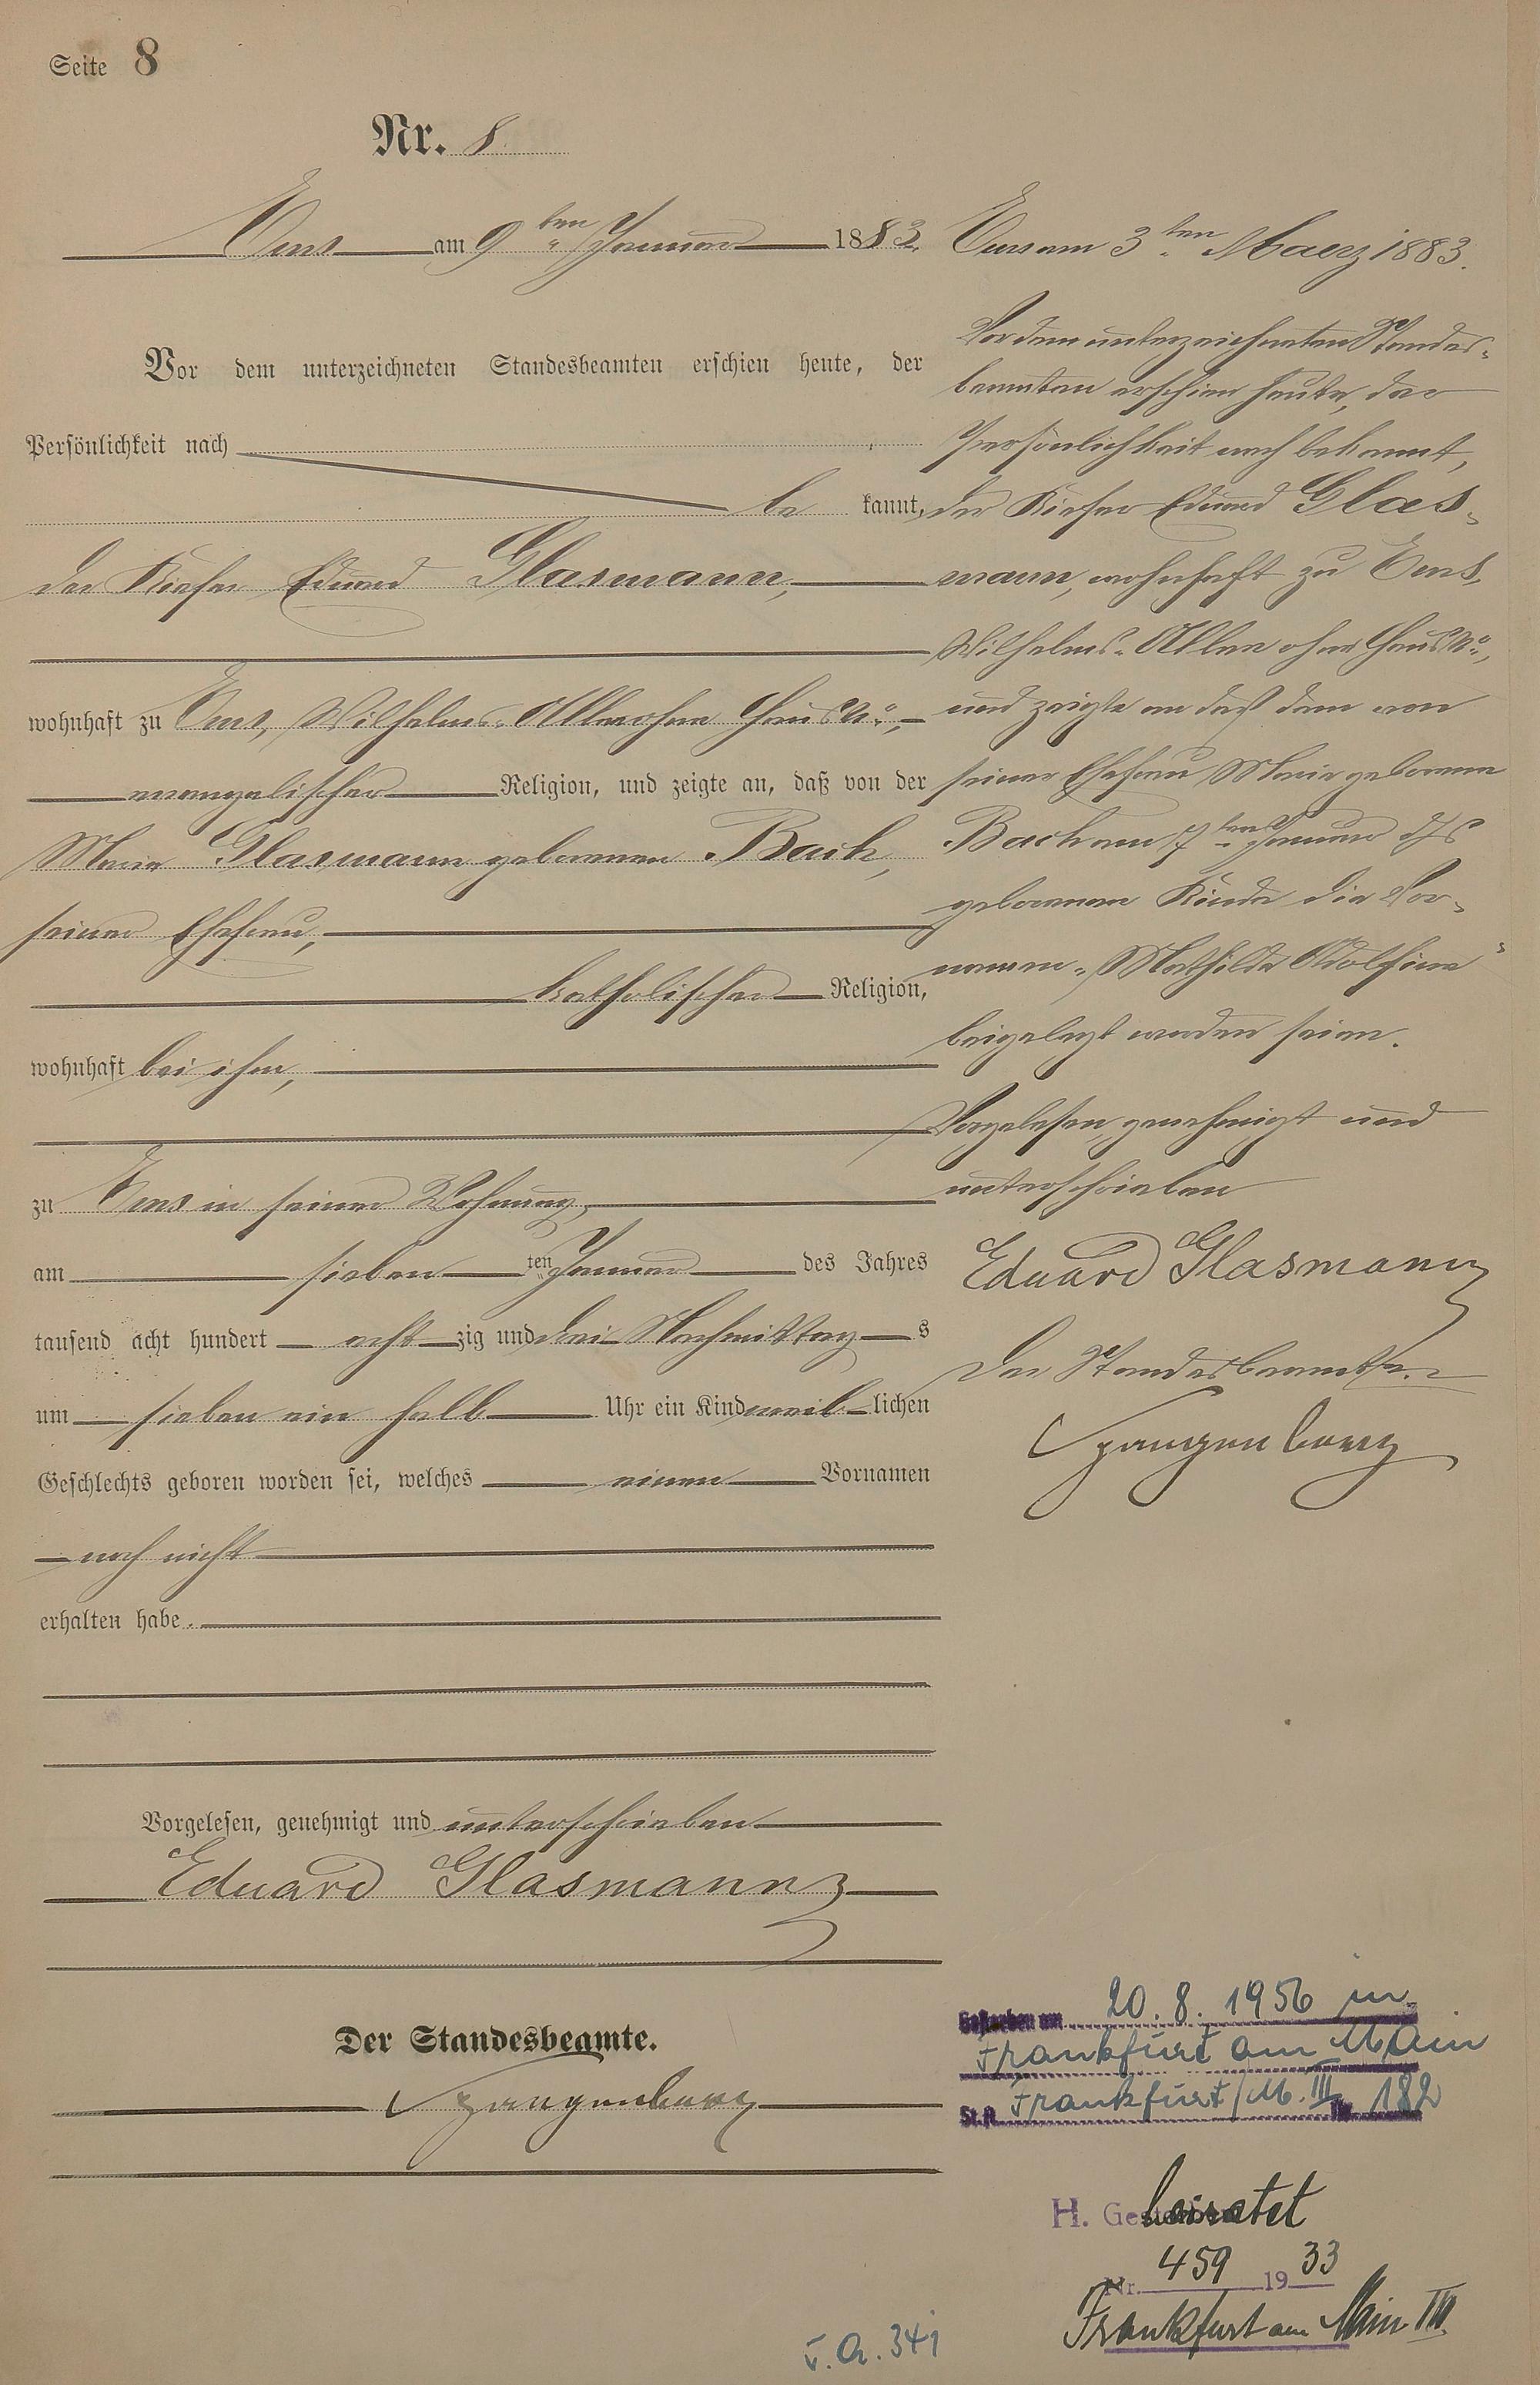 Seite 8
Nr. 8.
Ems am 9ten Januar 1883.
Vor dem unterzeichneten Standesbeamten erschien heute, der
Persönlichkeit nach
be kannt,
der Kiefer Eduard Glasmann,
wohnhaft zu Ems, Wilhelms-Allee ohne Haus No,
evangelischer Religion, und zeigte an, daß von der
Marie Glasmann geborenen Bach,
seiner Ehefrau,
katholischer Religion,
wohnhaft bei ihm,
zu Ems in seiner Wohnung,
am sieben ten Januar des Jahres
tausend acht hundert acht zig und drei Nachmittag s
um sieben ein halb Uhr ein Kind weib lichen
Geschlechts geboren worden sei, welches einen Vornamen
noch nicht
erhalten habe.
Vorgelesen, genehmigt und unterschrieben
Eduard Glasmann
Der Standesbeamte.
Spangenberg
Ems am 3ten Maerz 1883.
Vor dem unterzeichneten Standes-
beamten erschien heute, der
Persönlichkeit nach bekannt,
der Kiefer Eduard Glas-
mann, wohnhaft zu Ems,
Wilhelms-Allee ohne Haus No,
und zeigte an daß dem von
seiner Ehefrau Marie geborene
Bach am 7ten Januar djs
geborenen Kinde die Vor-
namen "Mathilde Adolfine"
beigelegt worden seien.
Vorgelesen, genehmigt und
unterschrieben
Eduard Glasmann
Der Standesbeamte.
Spangenberg
Gestorben am 20.8.1956 in
Frankfurt am Main
St.A. Frankfurt/M. III Nr. 182
H. Ge heiratet
Nr. 459 1933
Frankfurt am Main III
v. a. 341